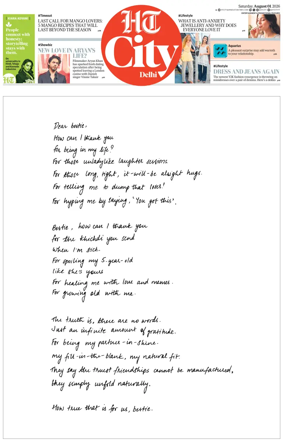 Saturday, August 01, 2026
#Throwout
LAST CALL FOR MANGO LOVERS:
5 MANGO RECIPES THAT WILL
LAST BEYOND THE SEASON
#Showbiz
NEW LOVE IN ARJAN'S
LIFE?
HT
City
Delhi
#Lifestyle
WHAT IS ANTI-ANXIETY
JEWELLERY AND WHY DOES
EVERYONE LOVE IT
#Lifestyle
DRESS AND JEANS AGAIN
Dear bestie,
How can I thank you
For being in my life?
For those unladylike laughter sessions
For those long, tight, it-will-be alright hugs.
For telling me to dump that loser!
For hyping me by saying, 'You got this'.
Bestie, how can I thank you
for the khichdi you send
When I'm sick.
For spoiling my 5-year-old
like she's yours
For healing me with love and memes.
For growing old with me.
The truth is, there are no words.
Just an infinite amount of gratitude.
For being my partner-in-shine.
my fill-in-the-blank, my natural fit.
They say the truest friendships cannot be manufactured,
they simply unfold naturally.
How true that is for us, bestie.